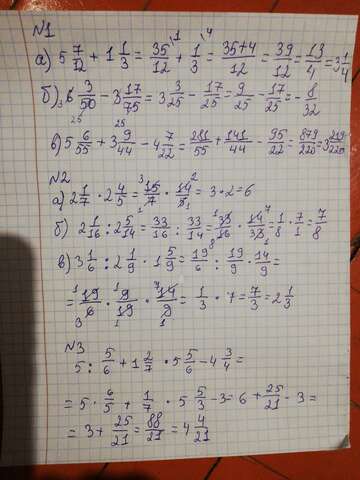 №1
а) 5 7/12 + 1 1/3 = 35/12 + 1/3 = 35+4/12 = 39/12 = 13/4 = 3 1/4
б) 6 3/50 - 3 17/75 = 3 3/25 - 17/25 = 9/25 - 17/25 = - 8/32
в) 5 6/55 + 3 9/44 - 4 7/22 = 281/55 + 141/44 - 95/22 = 879/220 = 3 219/220
№2
а) 2 1/7 · 2 4/5 = 15/7 · 14/5 = 3·2=6
б) 2 1/16 : 2 5/14 = 33/16 : 33/14 = 33/16 · 14/33 = 1/8 · 7/1 = 7/8
в) 3 1/6 : 2 1/9 · 1 5/9 = 19/6 : 19/9 · 14/9 =
= 19/6 · 9/19 · 14/9 = 1/3 · 7 = 7/3 = 2 1/3
№3
5 : 5/6 + 1 2/7 · 5 5/6 - 4 3/4 =
= 5 · 6/5 + 1/7 · 5 5/3 - 3 = 6 + 25/21 - 3 =
= 3 + 25/21 = 88/21 = 4 4/21